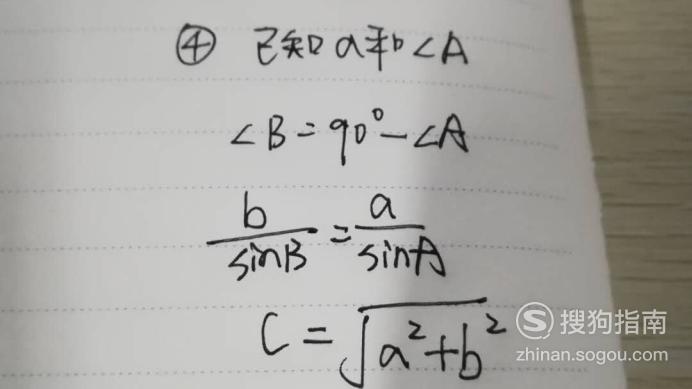 ④ 已知a和∠A
∠B=90°-∠A
b/sinB = a/sinA
c=√(a²+b²)
搜狗指南
zhinan.sogou.com